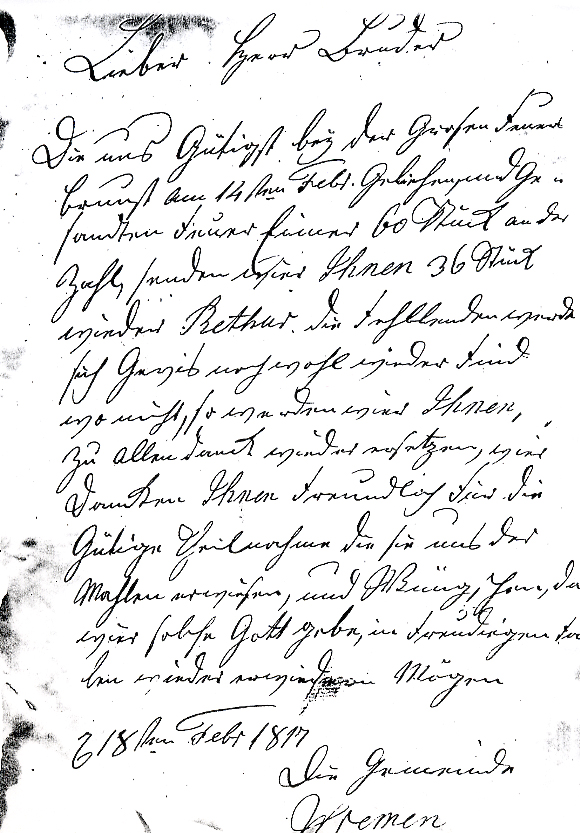 Lieber Herr Bruder
Die uns Gütigst bey der Grosen Feuers
brunst am 14 ten Febr. Geliehen, und Ge-
sandten Feuer Eimer 60 Stück an der
Zahl, senden wier Ihnen 36 Stück
wieder Rethur. die Fehllenden werde
sich Gewis noch wohl wieder Find
wo nicht, so werden wier Ihnen,
zu allen danck wieder ersetzen, wier
Dancken Ihnen Freundlich Für die
Gütige Theilnahme die sie uns der
Mahlen erwiesen, und Wünschen, da
wier solche Gott gebe, in Freudigen Fä
len wieder erwiedern Mögen
18ten Febr 1817
Die Gemeinde
Wremen